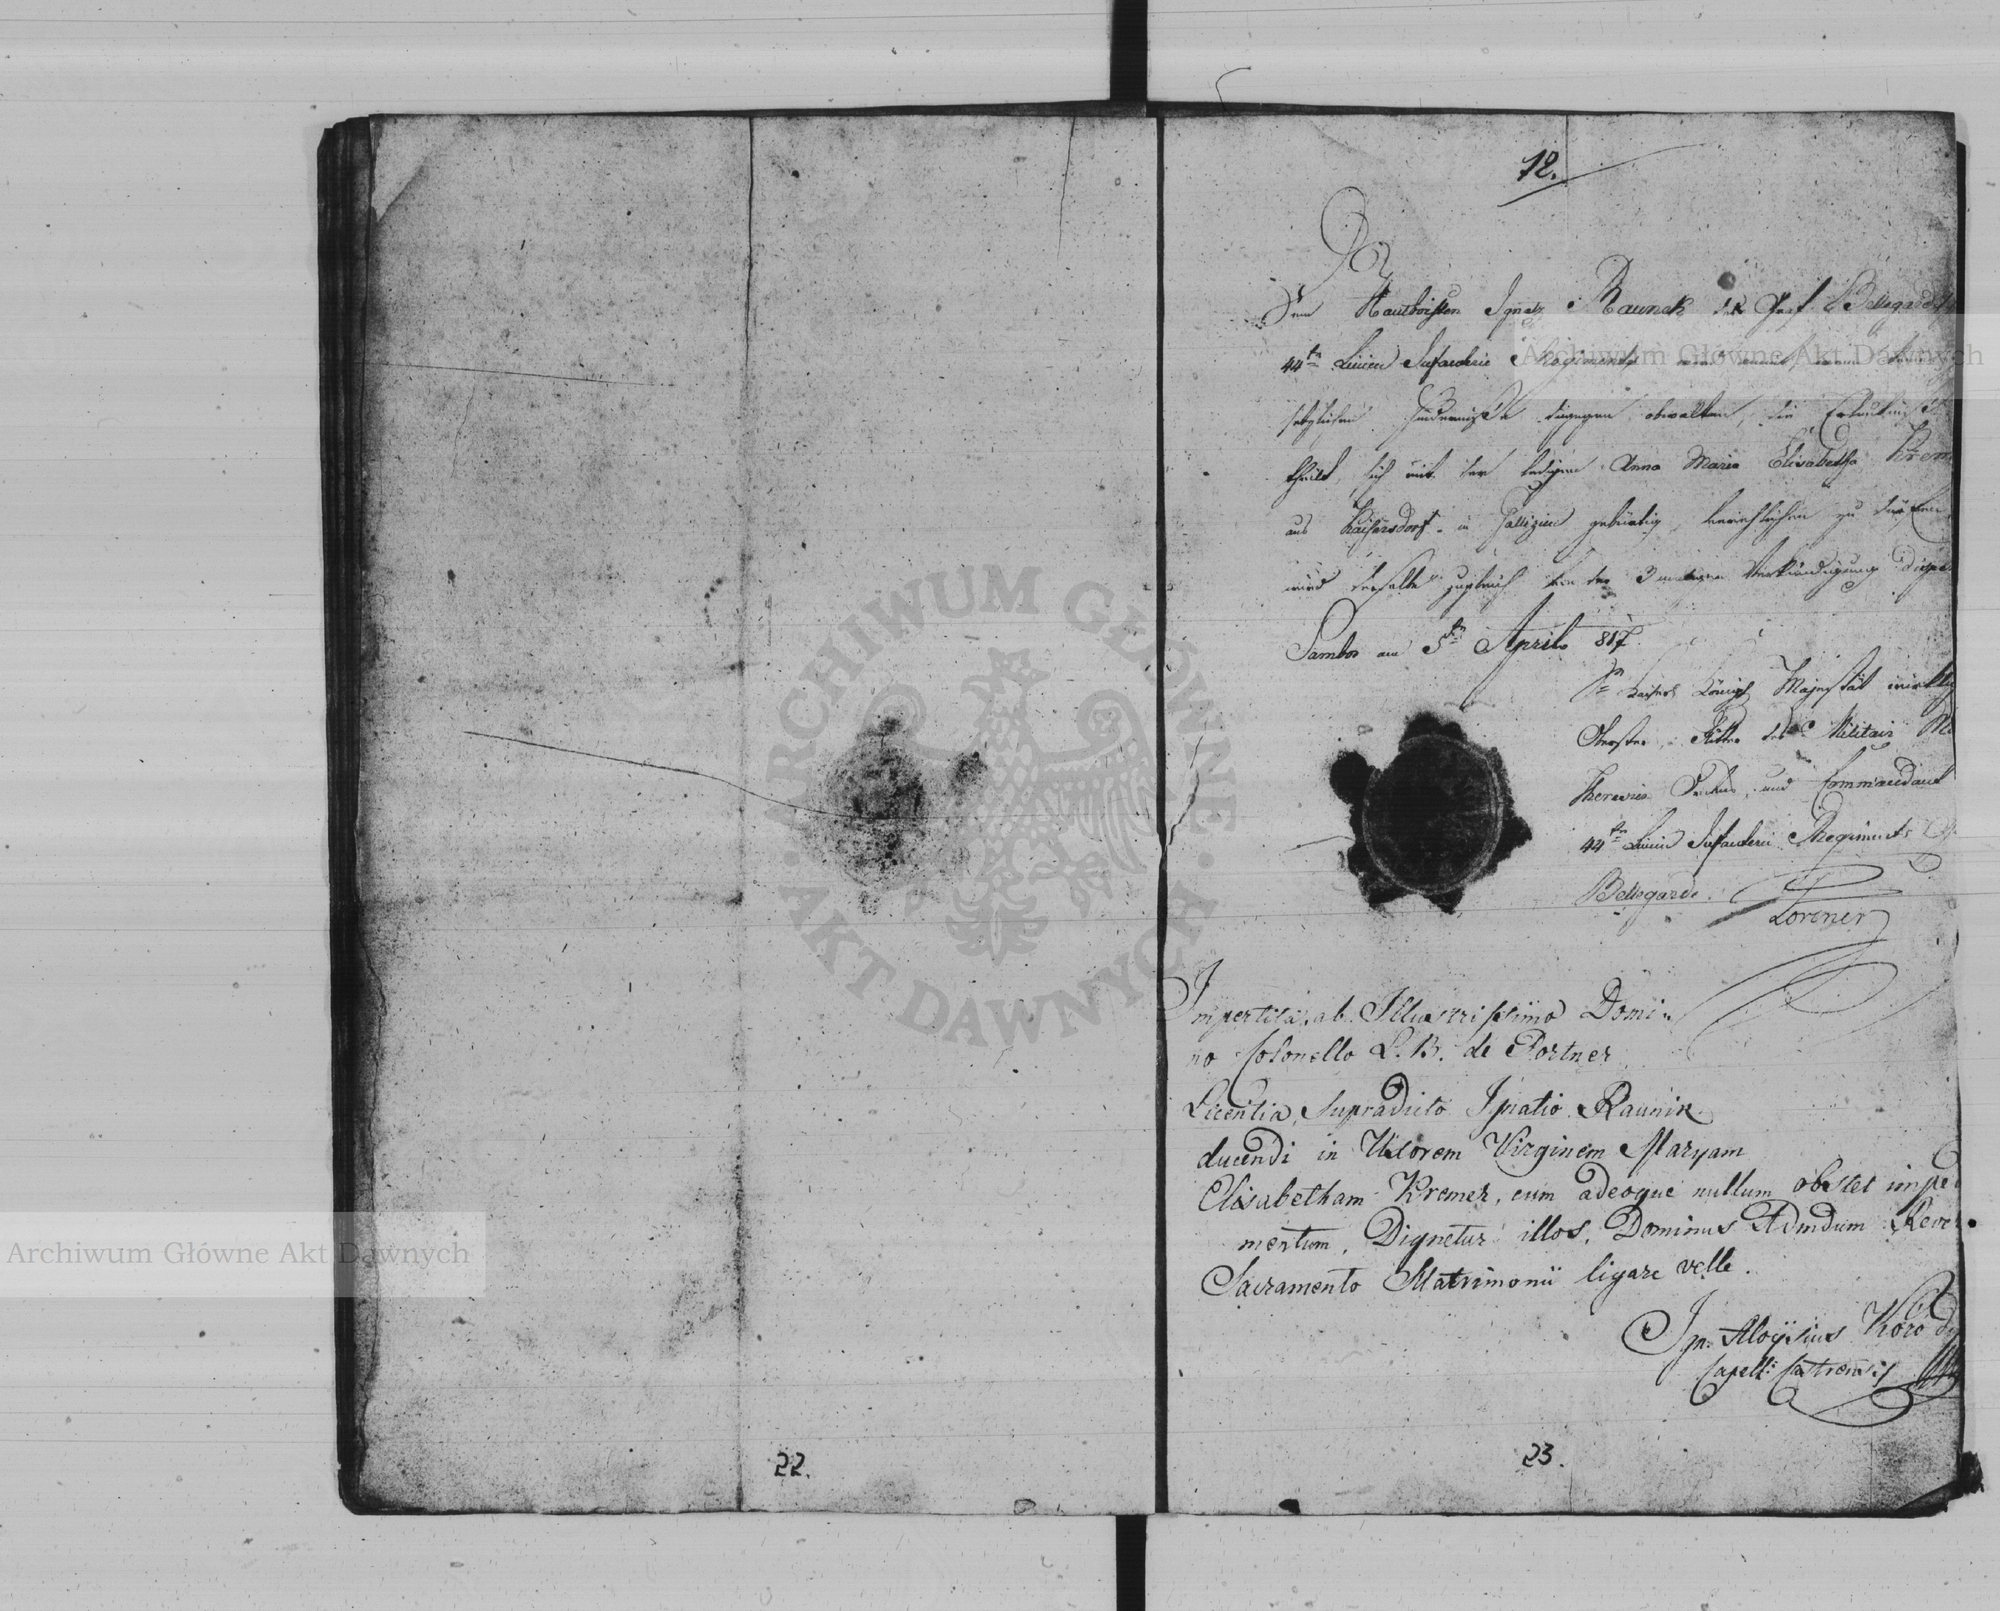 22.
12.
Dem Hautboisten Ignatz Raunek des Graf Bellegarde
44ten Linien Infanterie Regiments wird somit, wenn keine
setzlichen Hindernisse dagegen obwalten, die Erlaubniß
theilt, sich mit der ledigen Anna Maria Elisabetha Krem
aus Kaisersdorf in Gallizien gebürtig, verehlichen zu dürfen
wird derselbe zugleich von der 3 maligen Verkündigung dispe
Sambor am 5ten April 817.
Sr Kaiserl Königl Majestät wirkl
Oberster, Ritter des Militair M
Theresien Ordens, und Commandant
44ten Linien Infanterie Regiments
Bellegarde.
Impertita ab Illustrissimo Domi
no Colonello L. B. de Portner
Licentia, Supradicto Ignatio Raunik
ducendi in Uxorem Virginem Maryam
Elisabetham Kremer, cum adeoque nullum obstet impe
mentum, Dignetur illos, Dominus Admdum Rever
Sacramento Matrimonii ligare velle.
Ign: Aloysius
Capell: Castrensis
23.
ARCHIWUM GŁÓWNE AKT DAWNYCH
Archiwum Główne Akt Dawnych
Archiwum Główne Akt Dawnych